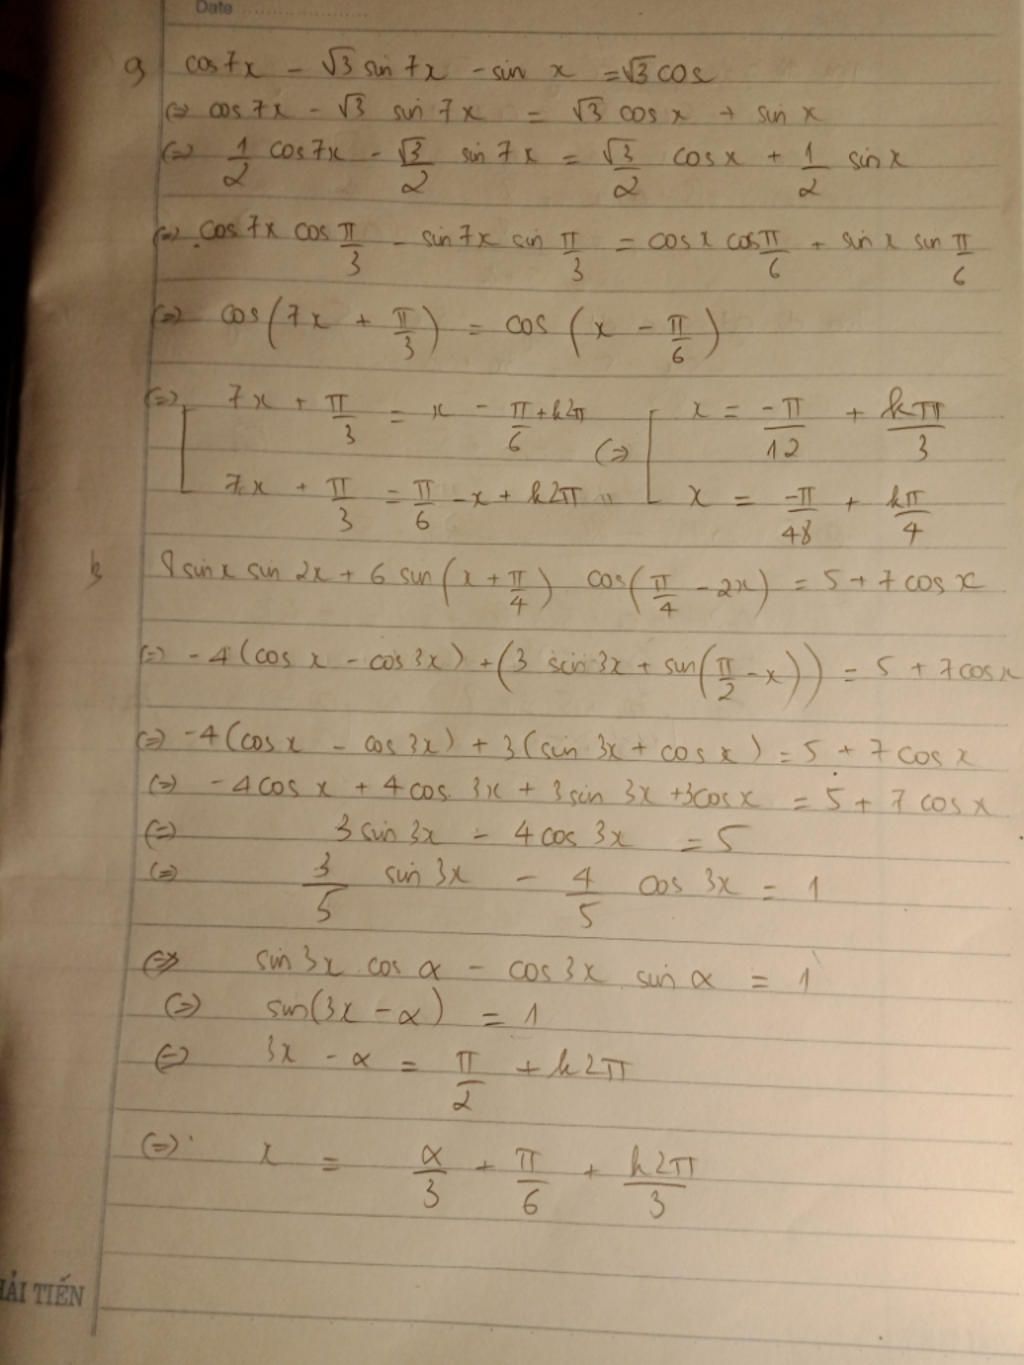 Date
a) cos7x - √3 sin 7x - sin x = √3 cos
(=) cos 7x - √3 sin 7x = √3 cosx + sin x
(=) 1/2 cos7x - √3/2 sin 7x = √3/2 cosx + 1/2 sinx
(=) cos 7x cos π/3 - sin7x sin π/3 = cosx cos π/6 + sin x sin π/6
(=) cos(7x + π/3) = cos(x - π/6)
(=) [ 7x + π/3 = x - π/6 + k2π (=) [ x = -π/12 + kπ/3
7x + π/3 = π/6 - x + k2π x = -π/48 + kπ/4
8sinx sin 2x + 6 sin(x + π/4) cos(π/4 - 2x) = 5 + 7 cos x
(=) -4(cos x - cos3x) + (3 sin 3x + sin(π/2 - x)) = 5 + 7cosx
(=) -4(cosx - cos3x) + 3(sin 3x + cos x) = 5 + 7cos x
(=) -4cos x + 4cos 3x + 3sin 3x + 3cosx = 5 + 7 cosx
(=) 3sin 3x - 4cos 3x = 5
(=) 3/5 sin 3x - 4/5 cos 3x = 1
(=) sin3x cos α - cos3x sin α = 1
(=) sin(3x - α) = 1
(=) 3x - α = π/2 + k2π
(=) x = α/3 + π/6 + k2π/3
HẢI TIẾN